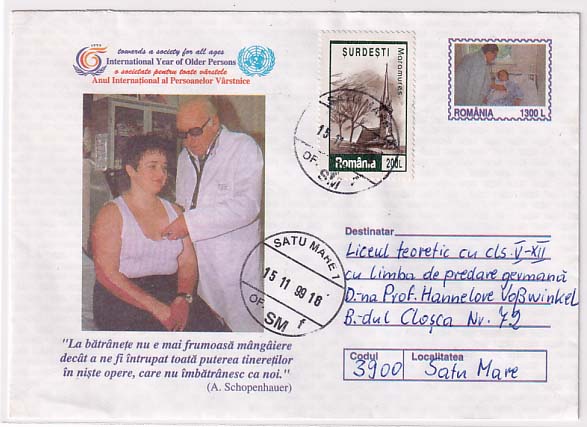 1999
towards a society for all ages
International Year of Older Persons
o societate pentru toate vârstele
Anul Internaţional al Persoanelor Vârstnice
SURDEŞTI
Maramureş
România 200L
ROMÂNIA 1300 L
SATU MARE 1
15 11
OF.
SM
SATU MARE 1
15 11 99 18
OF.
SM f
Destinatar
Liceul teoretic cu cls. V-XII
cu limba de predare germană
D-na Prof. Hannelore Voßwinkel
B-dul Cloşca Nr. 72
Codul Localitatea
3900 Satu Mare
"La bătrâneţe nu e mai frumoasă mângâiere
decât a ne fi întrupat toată puterea tinereţilor
în nişte opere, care nu îmbătrânesc ca noi."
(A. Schopenhauer)